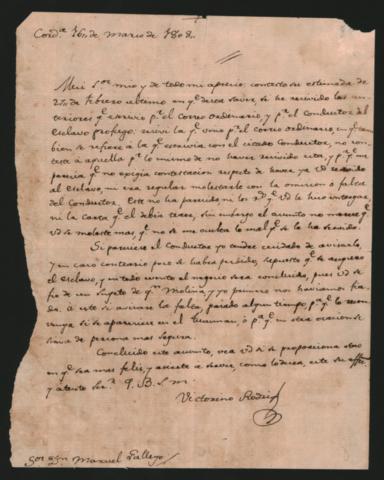 Cord.ª 16,, de Marzo de 1808,,
Mui S.or mio y de todo mi aprecio: contexto su estimada de
de febrero ultimo en q.e desea saver, si he recivido las an-
teriores q.e escrive p.r el correo ordenario, y p.r el conductor del
Esclavo profugo: recivi la q.e vino p.r el correo ordinario, en q.e tam-
bien se refiere à la q.e escrivia con el citado Conductor, no con-
texte à aquella p.r lo mismo de no haver recivido esta, y p.r q.e me
parecia q.e no exigia contextacion respeto de haver ya vd
el Esclavo, ni era regular molestarle con la omision ò falta
del Conductor. Este no ha parecido, ni los q.e vd le hizo entregar,
ni la carta q.e el devia traer, sin embargo el asunto no merece q.e
vd se moleste mas, q.e no se me oculta lo mal q.e le ha servido.
Si pareciere el Conductor yo tendre cuidado de avisarlo,
y en caso contrario por se habra perdido, supuesto q.e
el Esclavo, y en todo evento el negocio sera concluido, pues vd se
fio de un sugeto de q.n Molina, y yo primero nos haviamos fia-
do: à este si avisare la falta, pasado algun tiempo, p.ª q.e lo
si se apareciere en el Tucuman, ò p.ª q.e en otra ocasion se
de persona mas segura.
Concluido este asunto, vea vd si se proporciona otro
en q.e sea mas feliz, y acierte à servir, como lo desea, este su aff.to
y atento ser.r Q. B. S. M.
Victorino Rodrig.z
S.or d.n Manuel Gallego,,